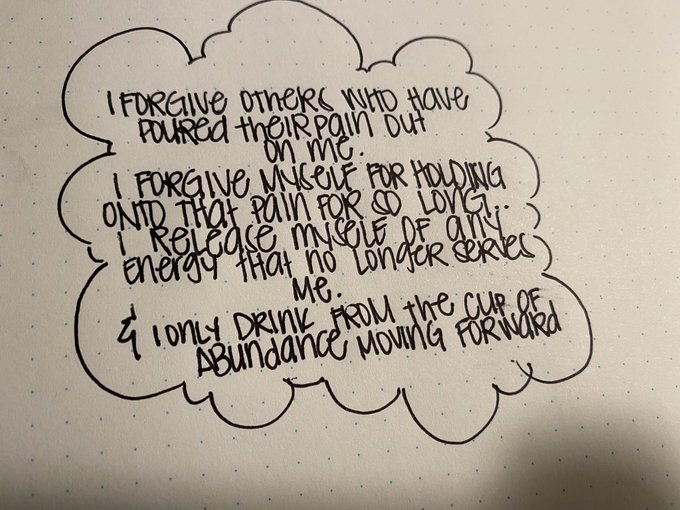 I FORGIVE OTHERS WHO HAVE
POURED THEIR PAIN OUT
ON ME.
I FORGIVE MYSELF FOR HOLDING
ONTO THAT PAIN FOR SO LONG..
I RELEASE MYSELF OF ANY
ENERGY THAT NO LONGER SERVES
ME.
& I ONLY DRINK FROM THE CUP OF
ABUNDANCE MOVING FORWARD